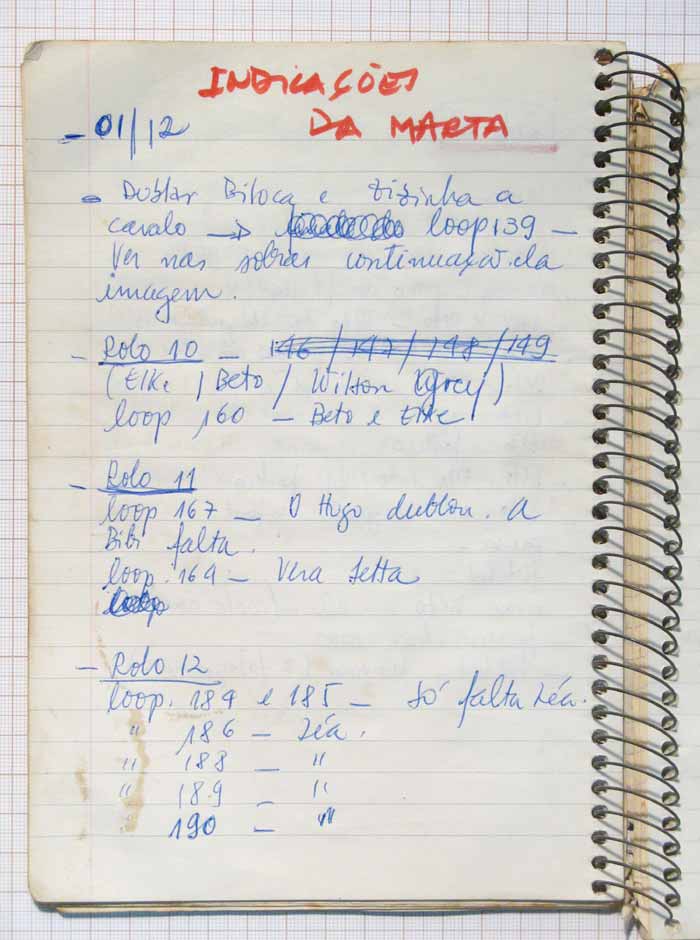 INDICAÇÕES
DA MARTA
- 01/12
- Dublar Biloca e Zizinha a
cavalo → loop 139 -
Ver nas sobras continuação da
imagem.
- Rolo 10 - 146 / 147 / 148 / 149
(Elke / Beto / Wilson Grey)
loop 160 - Beto e Elke
- Rolo 11
loop 167 - O Hugo dublou. A
Bibi falta.
loop. 169 - Vera Setta
loop
- Rolo 12
loop. 184 e 185 - Só falta Léa.
" 186 - Léa.
" 188 - "
" 189 - "
" 190 - "